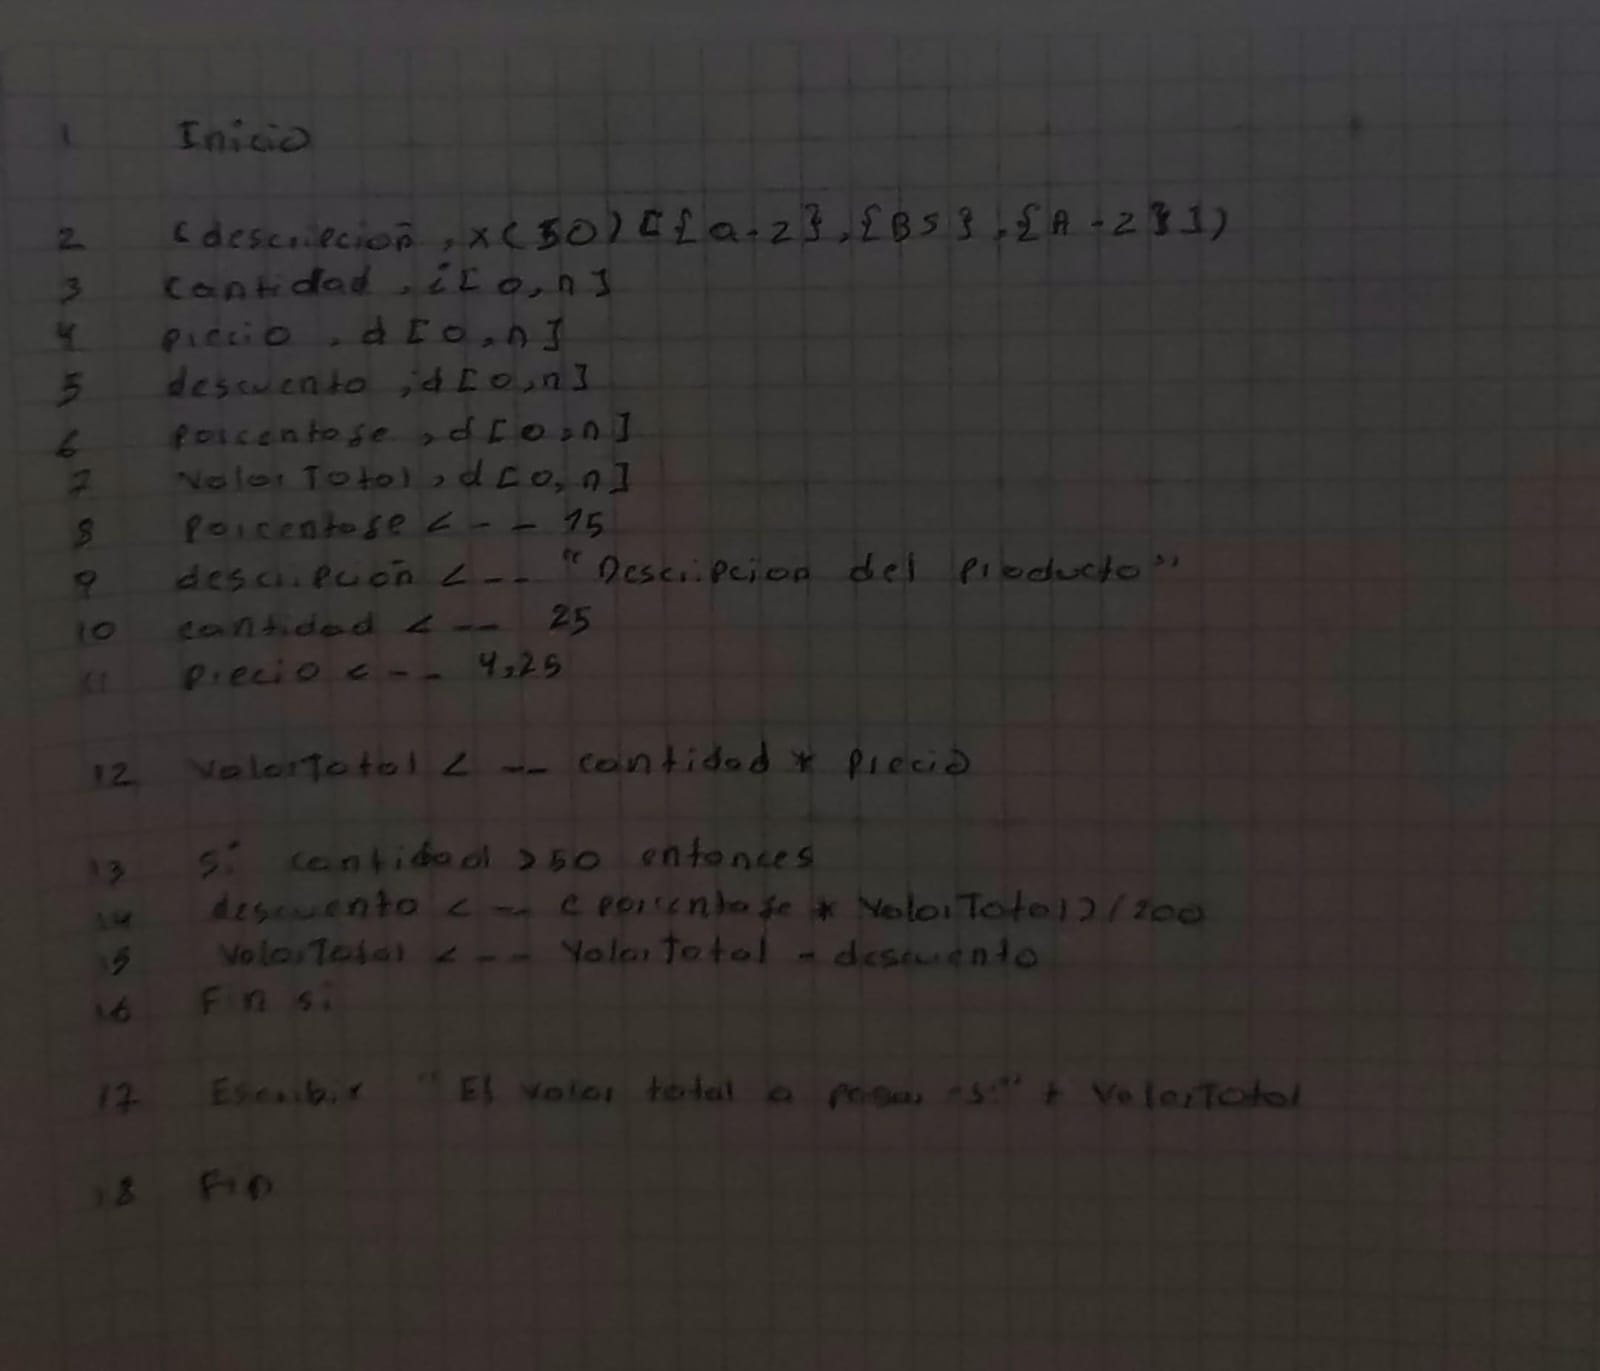 1 Inicio
2 (descripcioñ, x(50)[{a-z},{BS},{A-Z}])
3 cantidad, i[0,n]
4 precio, d[0,n]
5 descuento, d[0,n]
6 porcentaje, d[0,n]
7 ValorTotal, d[0,n]
8 Porcentaje <-- 15
9 descripcioñ <-- "Descripcion del Producto"
10 cantidad <-- 25
11 precio <-- 4,25
12 ValorTotal <-- cantidad * Precio
13 Si cantidad >50 entonces
14 descuento <-- (porcentaje * ValorTotal)/200
15 ValorTotal <-- ValorTotal - descuento
16 Fin si
17 Escribir "El valor total a pagar es:" + ValorTotal
18 Fin